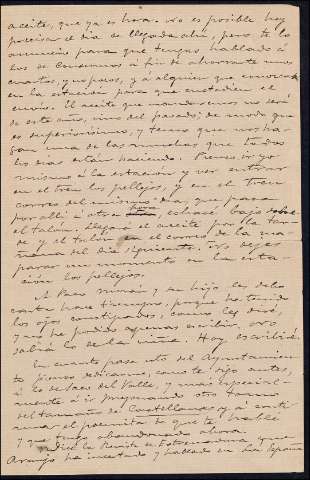 aceite, que ya es hora. No es posible hoy
precisar el dia de llegada ahí, pero te lo
anuncio para que tengas hablado á
los de Consumos á fin de ahorrarte unos
cuartos, y no pocos, y á alguien que conozcas
en la estación para que custodien el
envío. El aceite que mandaremos no será
de este año, sino del pasado; de modo que
es superiorísimo, y temo que nos ha-
gan una de las muchas que todos
los dias están haciendo. Pienso ir yo
mismo á la estacion y ver entrar
en el tren los pellejos, y en el tren
correo del mismo dia, que pasa
por allí á otra hora, echaré bajo sobre
el talon. Llegará el aceite por la tar-
de y el talón en el correo de la ma-
ñana del dia siguiente. No dejes
parar un momento en la esta-
ción los pellejos.
A Paco Román y su hijo les debo
carta hace tiempo, porque he tenido
los ojos constipados, como les diré,
y no he podido apenas escribir. No
sabía lo de la niña. Hoy escribiré.
En cuanto pase esto del Ayuntamien-
to pienso dedicarme, como te digo antes,
á lo de Saez del Valle, y mas especial-
mente á ir preparando otro tomo
del tamaño de Castellanas y á conti-
nuar el poemita de que te hablé
y que tengo abandonado ahora.
Dice la Revista de Extremadura que
Araujo ha insertado y hablado en La España